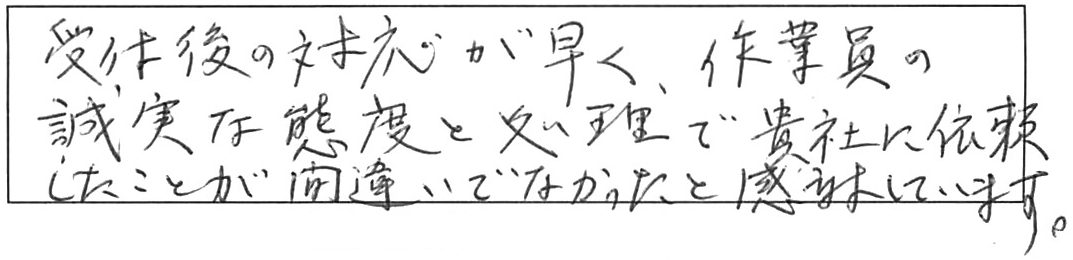 受付後の対応が早く、作業員の
誠実な態度と処理で貴社に依頼
したことが間違いでなかったと感謝しています。